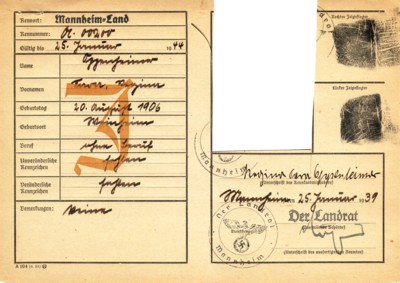 Kennort: Mannheim-Land
Kennnummer: A. 00200
Gültig bis 25. Januar 1944
Name Oppenheimer
Vornamen Sara, Regina
Geburtstag 20. August 1906
Geburtsort Weinheim
Beruf ohne Beruf
Unveränderliche Kennzeichen fehlen
Veränderliche Kennzeichen fehlen
Bemerkungen: Keine
J
Rechter Zeigefinger
Linker Zeigefinger
Regina Sara Oppenheimer
(Unterschrift des Kennkarteninhabers)
Mannheim, 25. Januar 1939
Der Landrat
(Ausstellende Behörde)
(Unterschrift des ausfertigenden Beamten)
Der Landrat
Mannheim